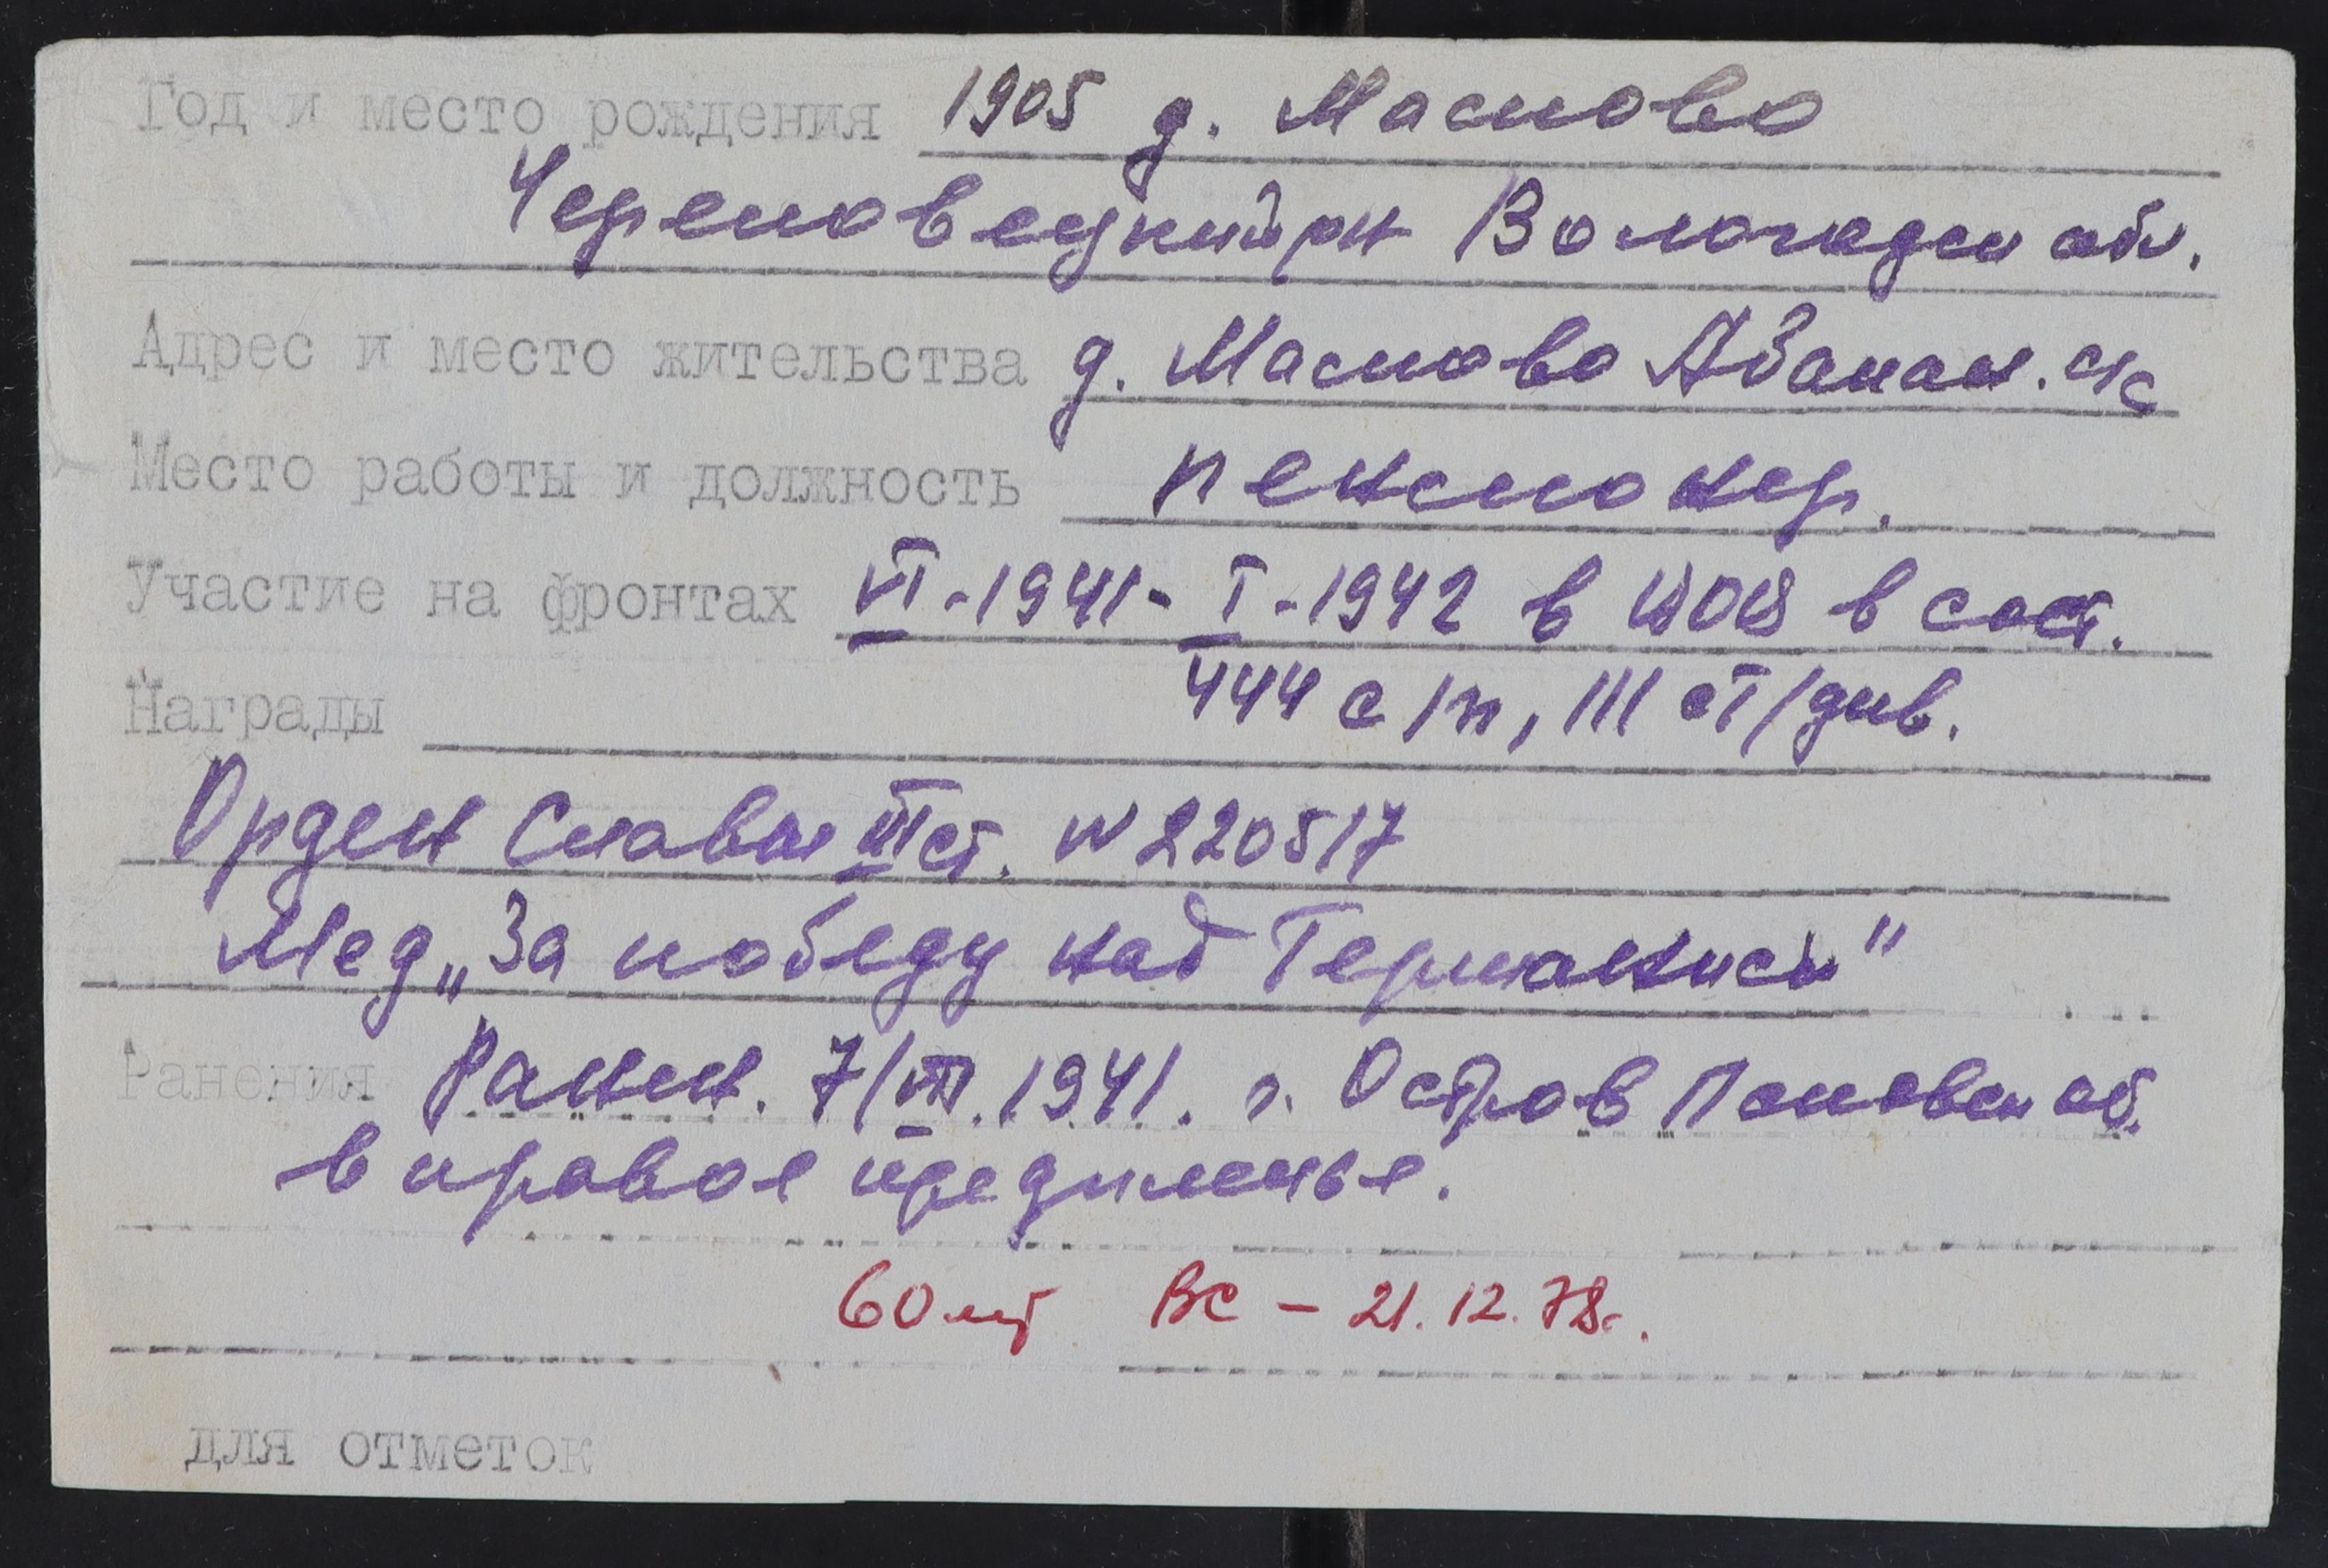 Год и место рождения 1905 д. Маслово
Череповецкий рн Вологодск обл.
Адрес и место жительства д. Маслово Абакан. с/с
Место работы и должность пенсионер.
Участие на фронтах VI-1941- I-1942 в ВОВ в сост.
444 с/п, 111 ст/див.
Награды
Орден Славы III ст. N 220517
Мед „За победу над Германией"
Ранения Ранен. 7/VII.1941. г. Остров Псковск об.
в правое предплечье.
60 лет ВС - 21.12.78г.
для отметок